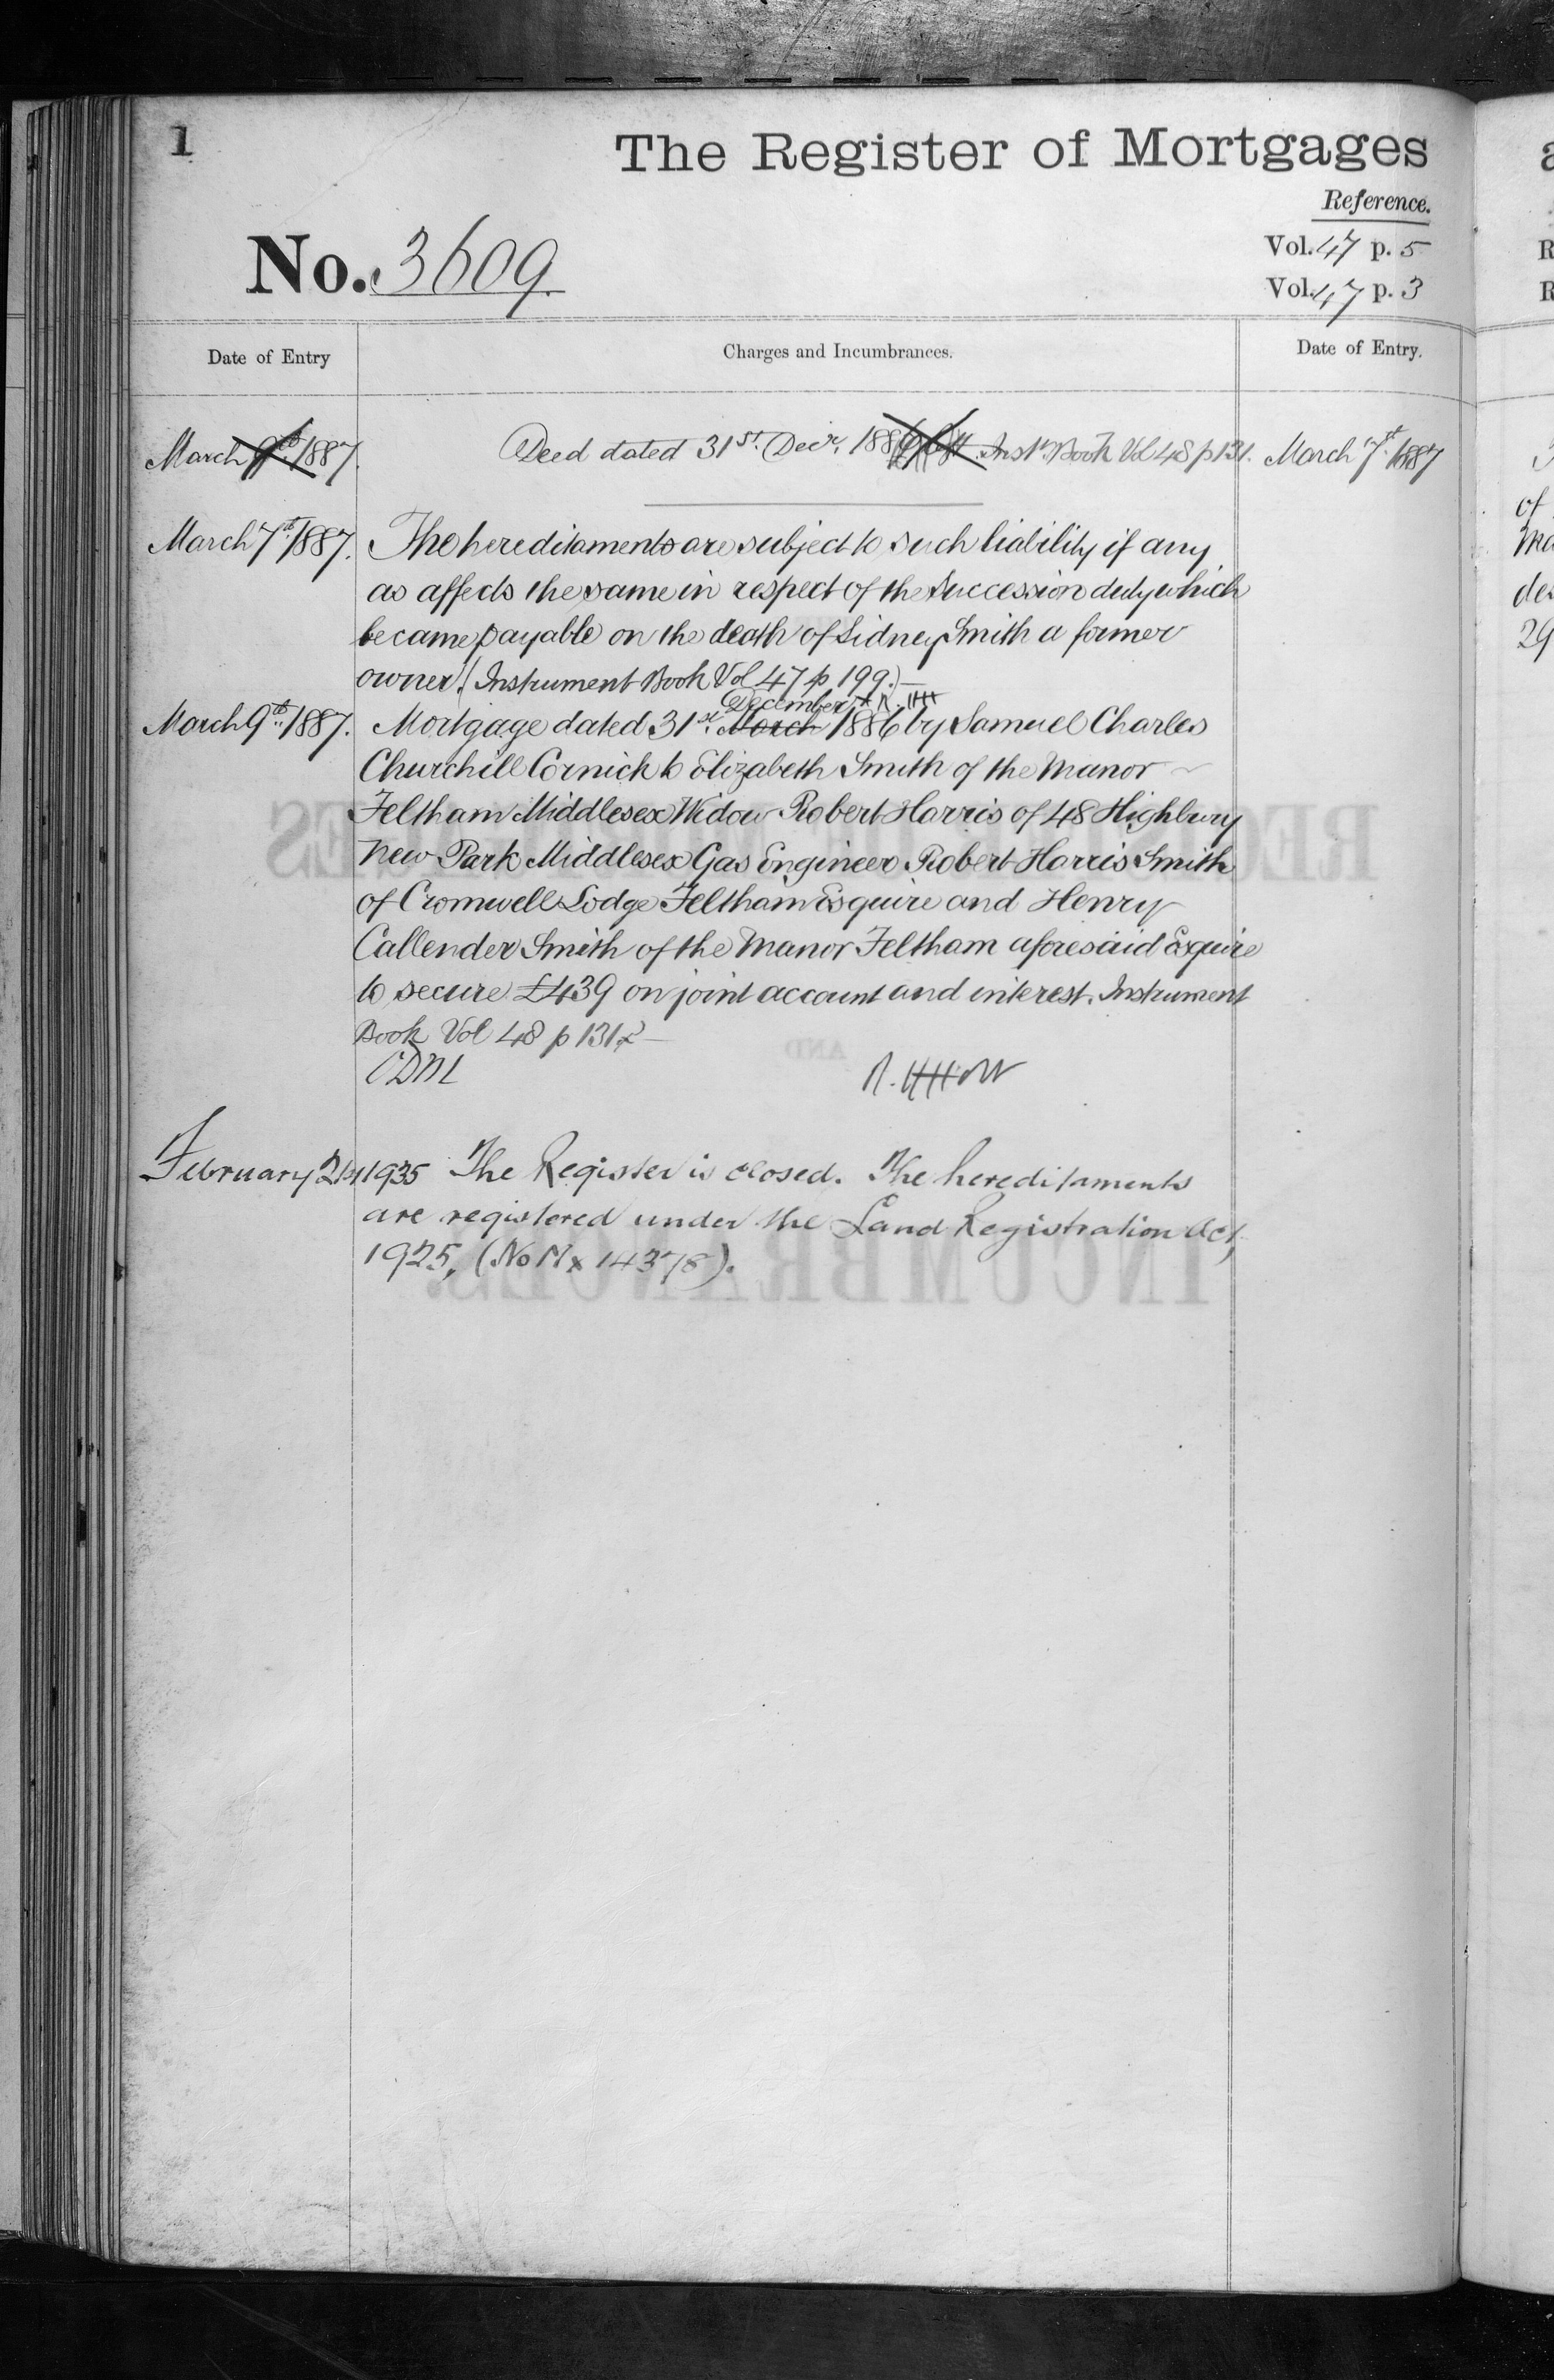 1
The Register of Mortgages
Reference.
No. 3609.
Vol. 47 p. 5
Vol. 47 p. 3
Date of Entry
Charges and Incumbrances.
Date of Entry.
March 9th 1887.
Deed dated 31st. Decr. 188 Inst. Book Vol 48 p 131.
March 7th 1887
March 7th 1887.
The hereditaments are subject to such liability if any
as affects the same in respect of the Succession duty which
became payable on the death of Sidney Smith a former
owner. (Instrument Book Vol 47 p 199.)—
December
March 9th 1887.
Mortgage dated 31st. March 1886 by Samuel Charles
Churchill Cornick to Elizabeth Smith of the Manor
Feltham Middlesex Widow Robert Harris of 48 Highbury
New Park Middlesex Gas Engineer Robert Harris Smith
of Cromwell Lodge Feltham Esquire and Henry
Callender Smith of the Manor Feltham aforesaid Esquire
to secure £439 on joint account and interest. Instrument
Book Vol 48 p 131
AND
February 21st 1935 The Register is closed. The hereditaments
are registered under the Land Registration Act,
1925, (No Mx 14378).
INCUMBRANCES.